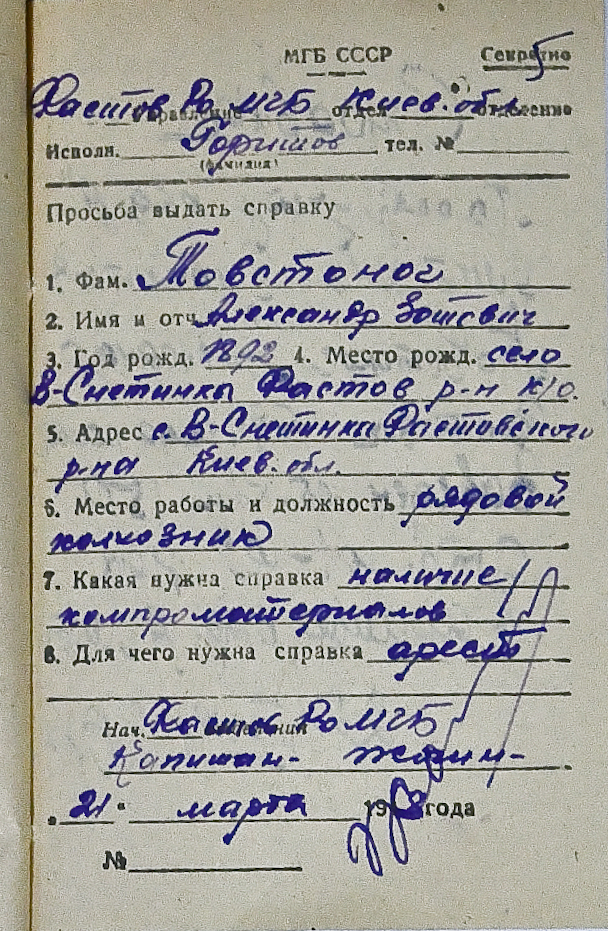 МГБ СССР Секретно
Фастов Ро МГБ Киев. обл.
управление отдел отделение
Исполн. тел. №
(фамилия)
Просьба выдать справку
1. Фам. Товстоног
2. Имя и отч. Александр Зотевич
3. Год рожд. 1892 4. Место рожд. село
В-Снетинка Фастов р-н К/о.
5. Адрес с. В-Снетинка Фастовского
р-на Киев. обл.
6. Место работы и должность рядовой
колхозник
7. Какая нужна справка наличие
компроматериалов
8. Для чего нужна справка арест
Нач. Фастов Ро МГБ
Капитан-
"21" марта 19 года
№